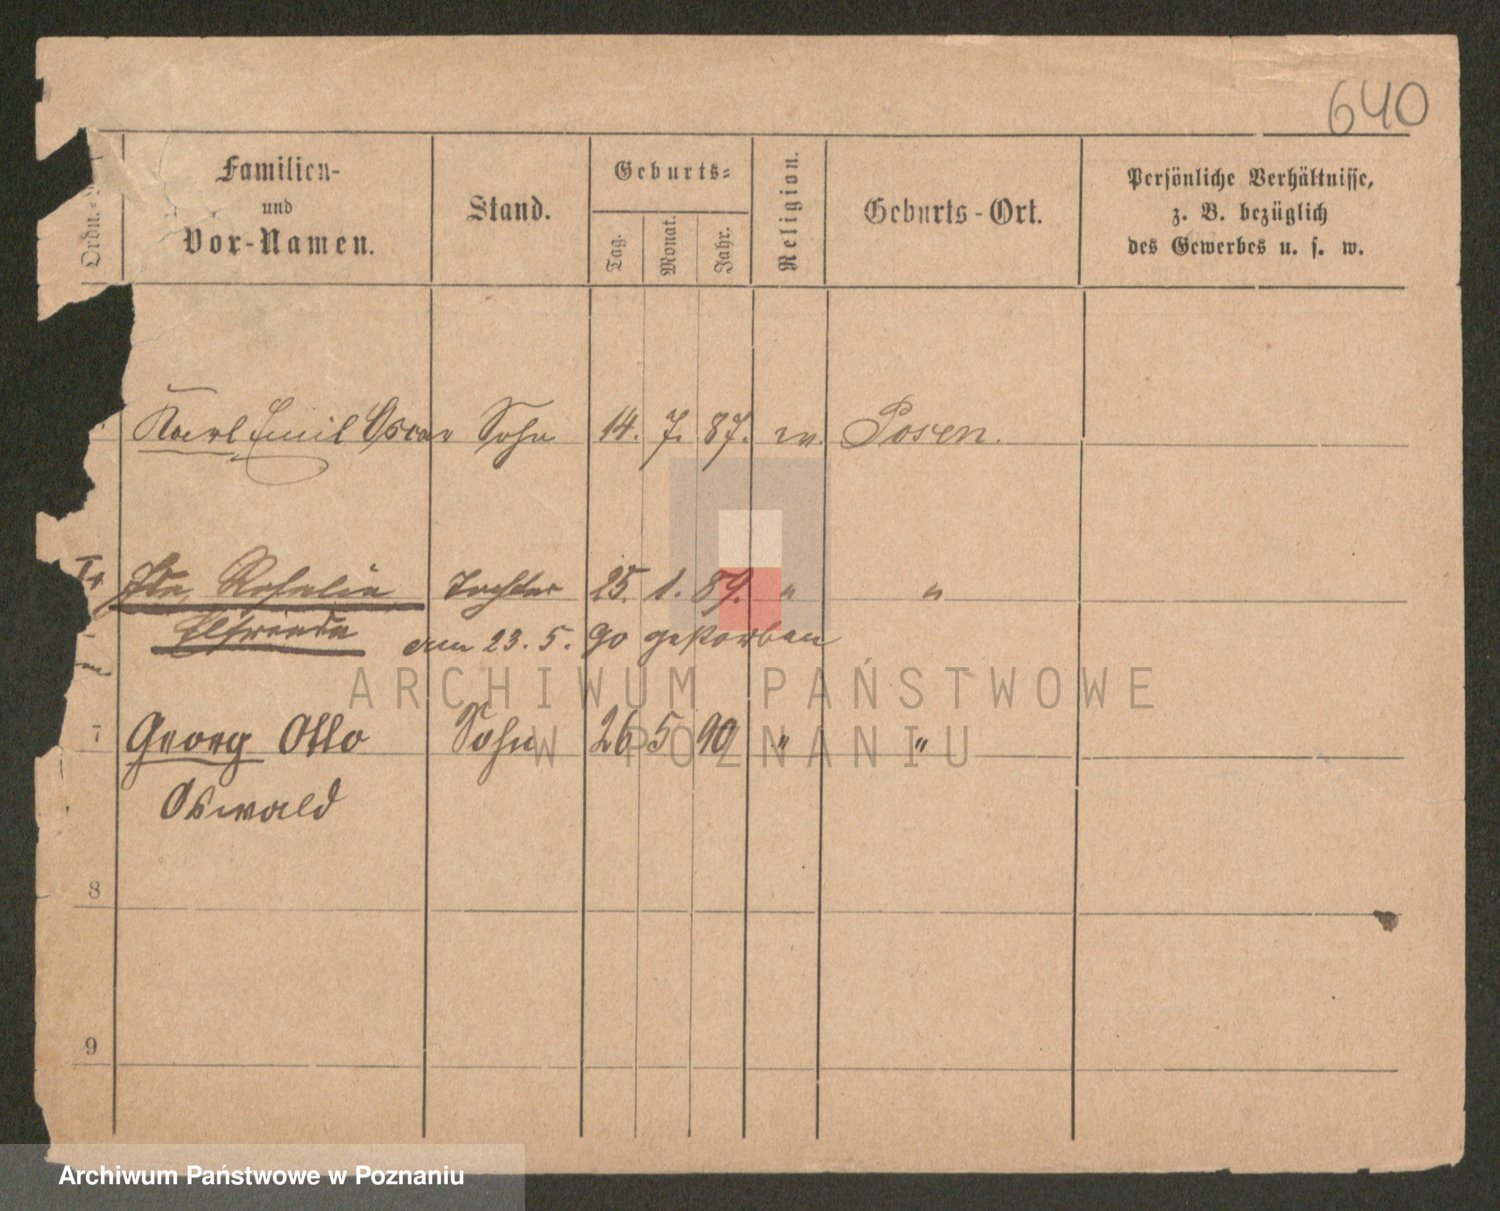 640
Ordn.
Familien-
und
Vor-Namen.
Stand.
Geburts-
Tag.
Monat.
Jahr.
Religion.
Geburts-Ort.
Persönliche Verhältnisse,
z. B. bezüglich
des Gewerbes u. s. w.
Karl Emil Oscar Sohn 14. 7. 87. ev. Posen.
Ida Rosalie Tochter 25. 1. 89. " "
Elfriede am 23. 5. 90 gestorben
ARCHIWUM PAŃSTWOWE
W POZNANIU
7 Georg Otto Sohn 26 5 90 " "
Oswald
8
9
Archiwum Państwowe w Poznaniu